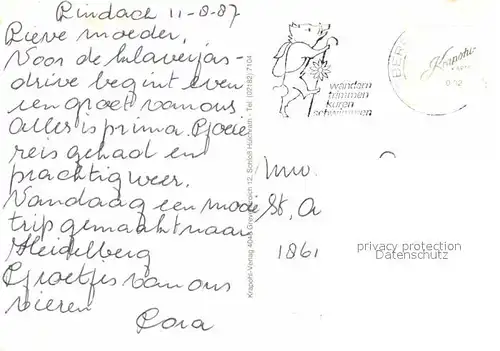 Lindach 11-8-87
Lieve moeder,
Voor de klaverjas-
drive begint even
een groet van ons
Alles is prima. Goede
reis gehad en
prachtig weer.
Vandaag een mooie
trip gemaakt naar
Heidelberg
Groetjes van ons
vieren
Cora
wandern
trimmen
kuren
schwimmen
Krapohl
Krapohl-Verlag 4048 Grevenbroich 12, Schloß Hülchrath · Tel (02182) 7104
Mw.
St, A
1861
privacy protection
Datenschutz